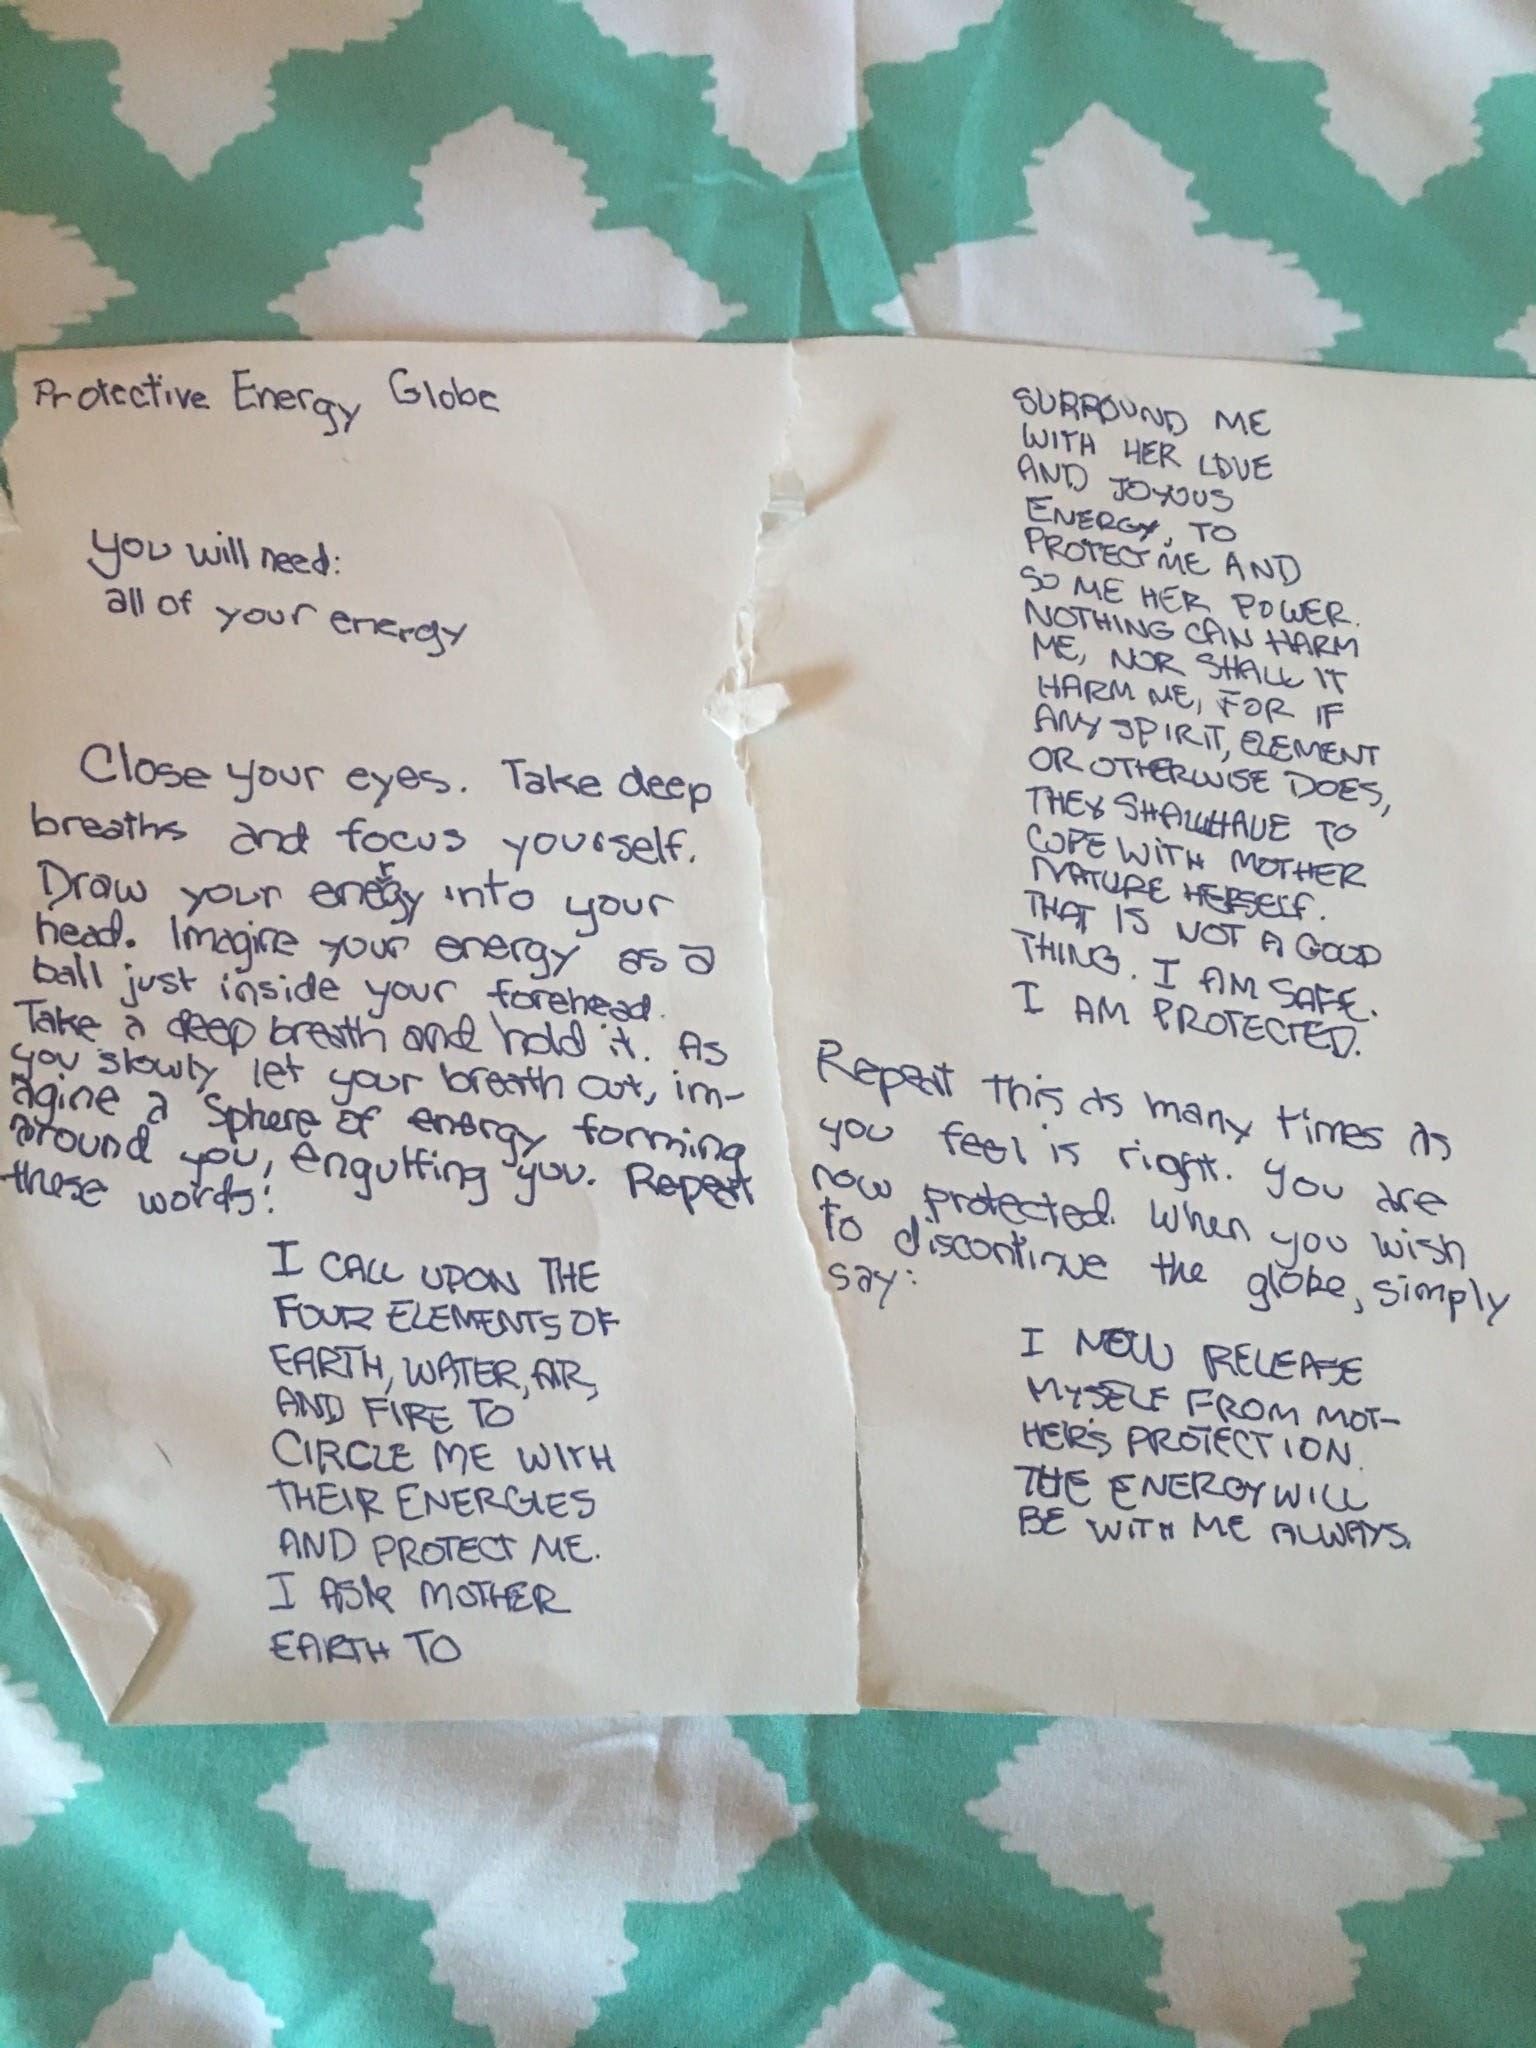 Protective Energy Globe
you will need:
all of your energy
Close your eyes. Take deep
breaths and focus yourself.
Draw your energy into your
head. Imagine your energy as a
ball just inside your forehead.
Take a deep breath and hold it. As
you slowly let your breath out, im-
agine a sphere of energy forming
around you, engulfing you. Repeat
these words:
I CALL UPON THE
FOUR ELEMENTS OF
EARTH, WATER, AIR,
AND FIRE TO
CIRCLE ME WITH
THEIR ENERGIES
AND PROTECT ME.
I ASK MOTHER
EARTH TO
SURROUND ME
WITH HER LOVE
AND JOYOUS
ENERGY, TO
PROTECT ME AND
SO ME HER POWER.
NOTHING CAN HARM
ME, NOR SHALL IT
HARM ME, FOR IF
ANY SPIRIT, ELEMENT
OR OTHERWISE DOES,
THEY SHALL HAVE TO
COPE WITH MOTHER
NATURE HERSELF.
THAT IS NOT A GOOD
THING. I AM SAFE.
I AM PROTECTED.
Repeat this as many times as
you feel is right. You are
now protected. When you wish
to discontinue the globe, simply
say:
I NOW RELEASE
MYSELF FROM MOT-
HER'S PROTECTION.
THE ENERGY WILL
BE WITH ME ALWAYS.